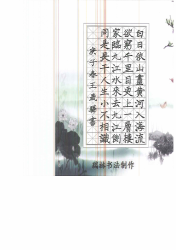 白日依山盡黃河入海流
欲窮千里目更上一層樓
家臨九江水來去九江側
同是長干人生小不相識
庚子春王書
书法制作